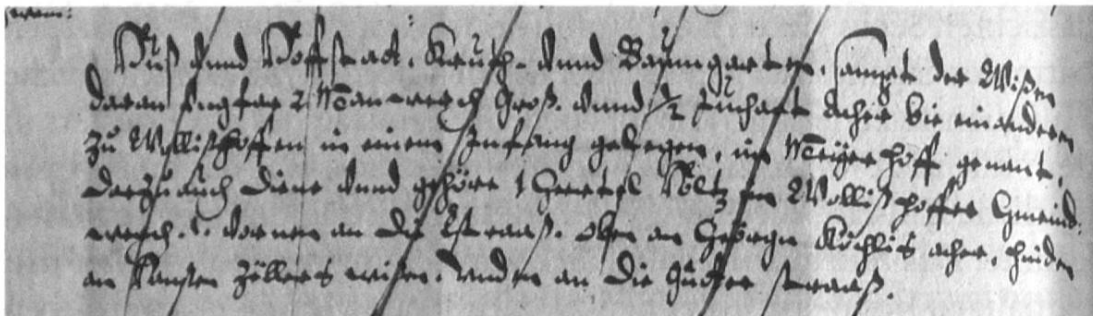 Huß vnnd Hoffstatt, Krutt- vnnd Baumgarten, sampt der Wißen
daran vngfar 2 Manwerch groß. vnnd ½ Juchart acher bie einanderen
zu Wollishoffen in einem Infang gelegen, im Meÿerhoff genant,
darzu auch diene vnnd gehöre 1 Gerechtigkeit Holtz im Wollißhoffer Gmeind-
werch. vornen an die Straaß. oben an Geörgen Köchlis acher, hinden
an Hansen Zollers wisen. vnden an die straaß.